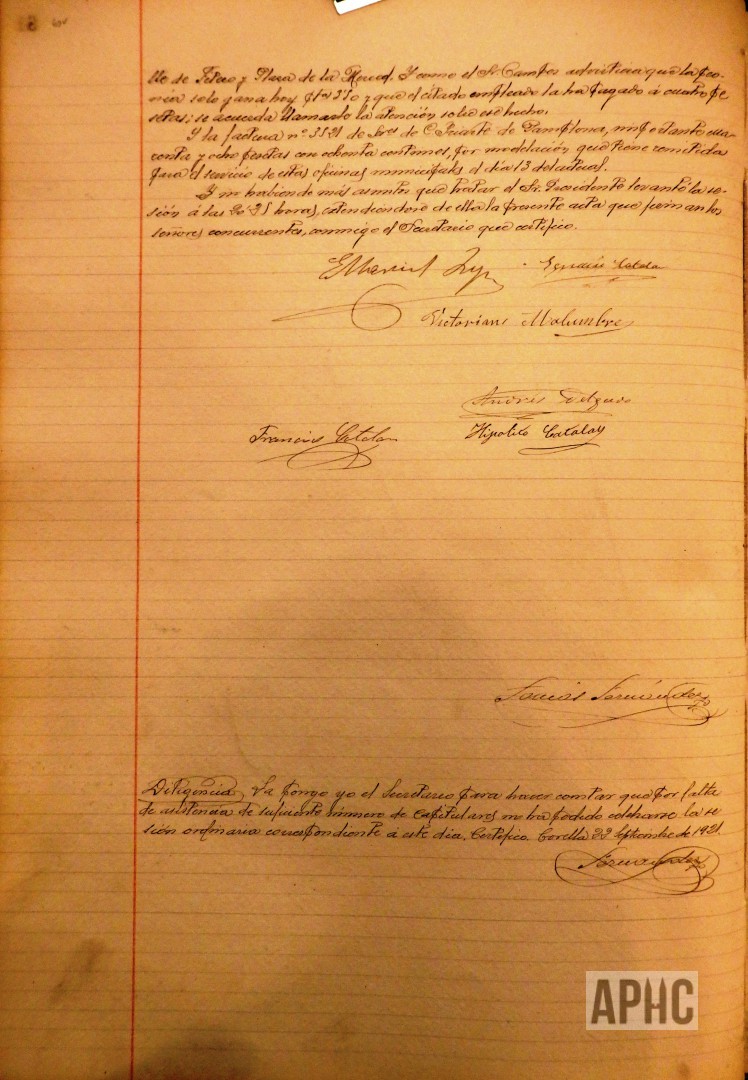 lle de Tetao y Plaza de la Merced. Y como el Sr. Campos advirtiera que la
solo gana hoy y que el citado empleado la ha pagado á cuatro pe-
setas; se acuerda llamarle la atención sobre ese hecho.
Y la factura nº 3521 de de Pamplona, importante cua-
renta y ocho pesetas con ochenta centimos, por modelación que tiene remitida
para el servicio de estas oficinas municipales el día 13 del actual.
Y no habiendo más asuntos que tratar el Sr. Presidente levantó la se-
sión á las horas, extendiendose de ella la presente acta que firman los
señores concurrentes, conmigo el Secretario que certifico.
Manuel
Ignacio Catalan
Victoriano Malumbres
Andres Delgado
Francisco Catalan
Hipolito Catalan
Tomás Fernández
Diligencia. La pongo yo el Secretario para hacer constar que por falta
de asistencia de suficiente número de Capitulares no ha podido celebrarse la se-
sión ordinaria correspondiente á este día. Certifico. Corella 22 Septiembre de 1921.
Fernandez
APHC